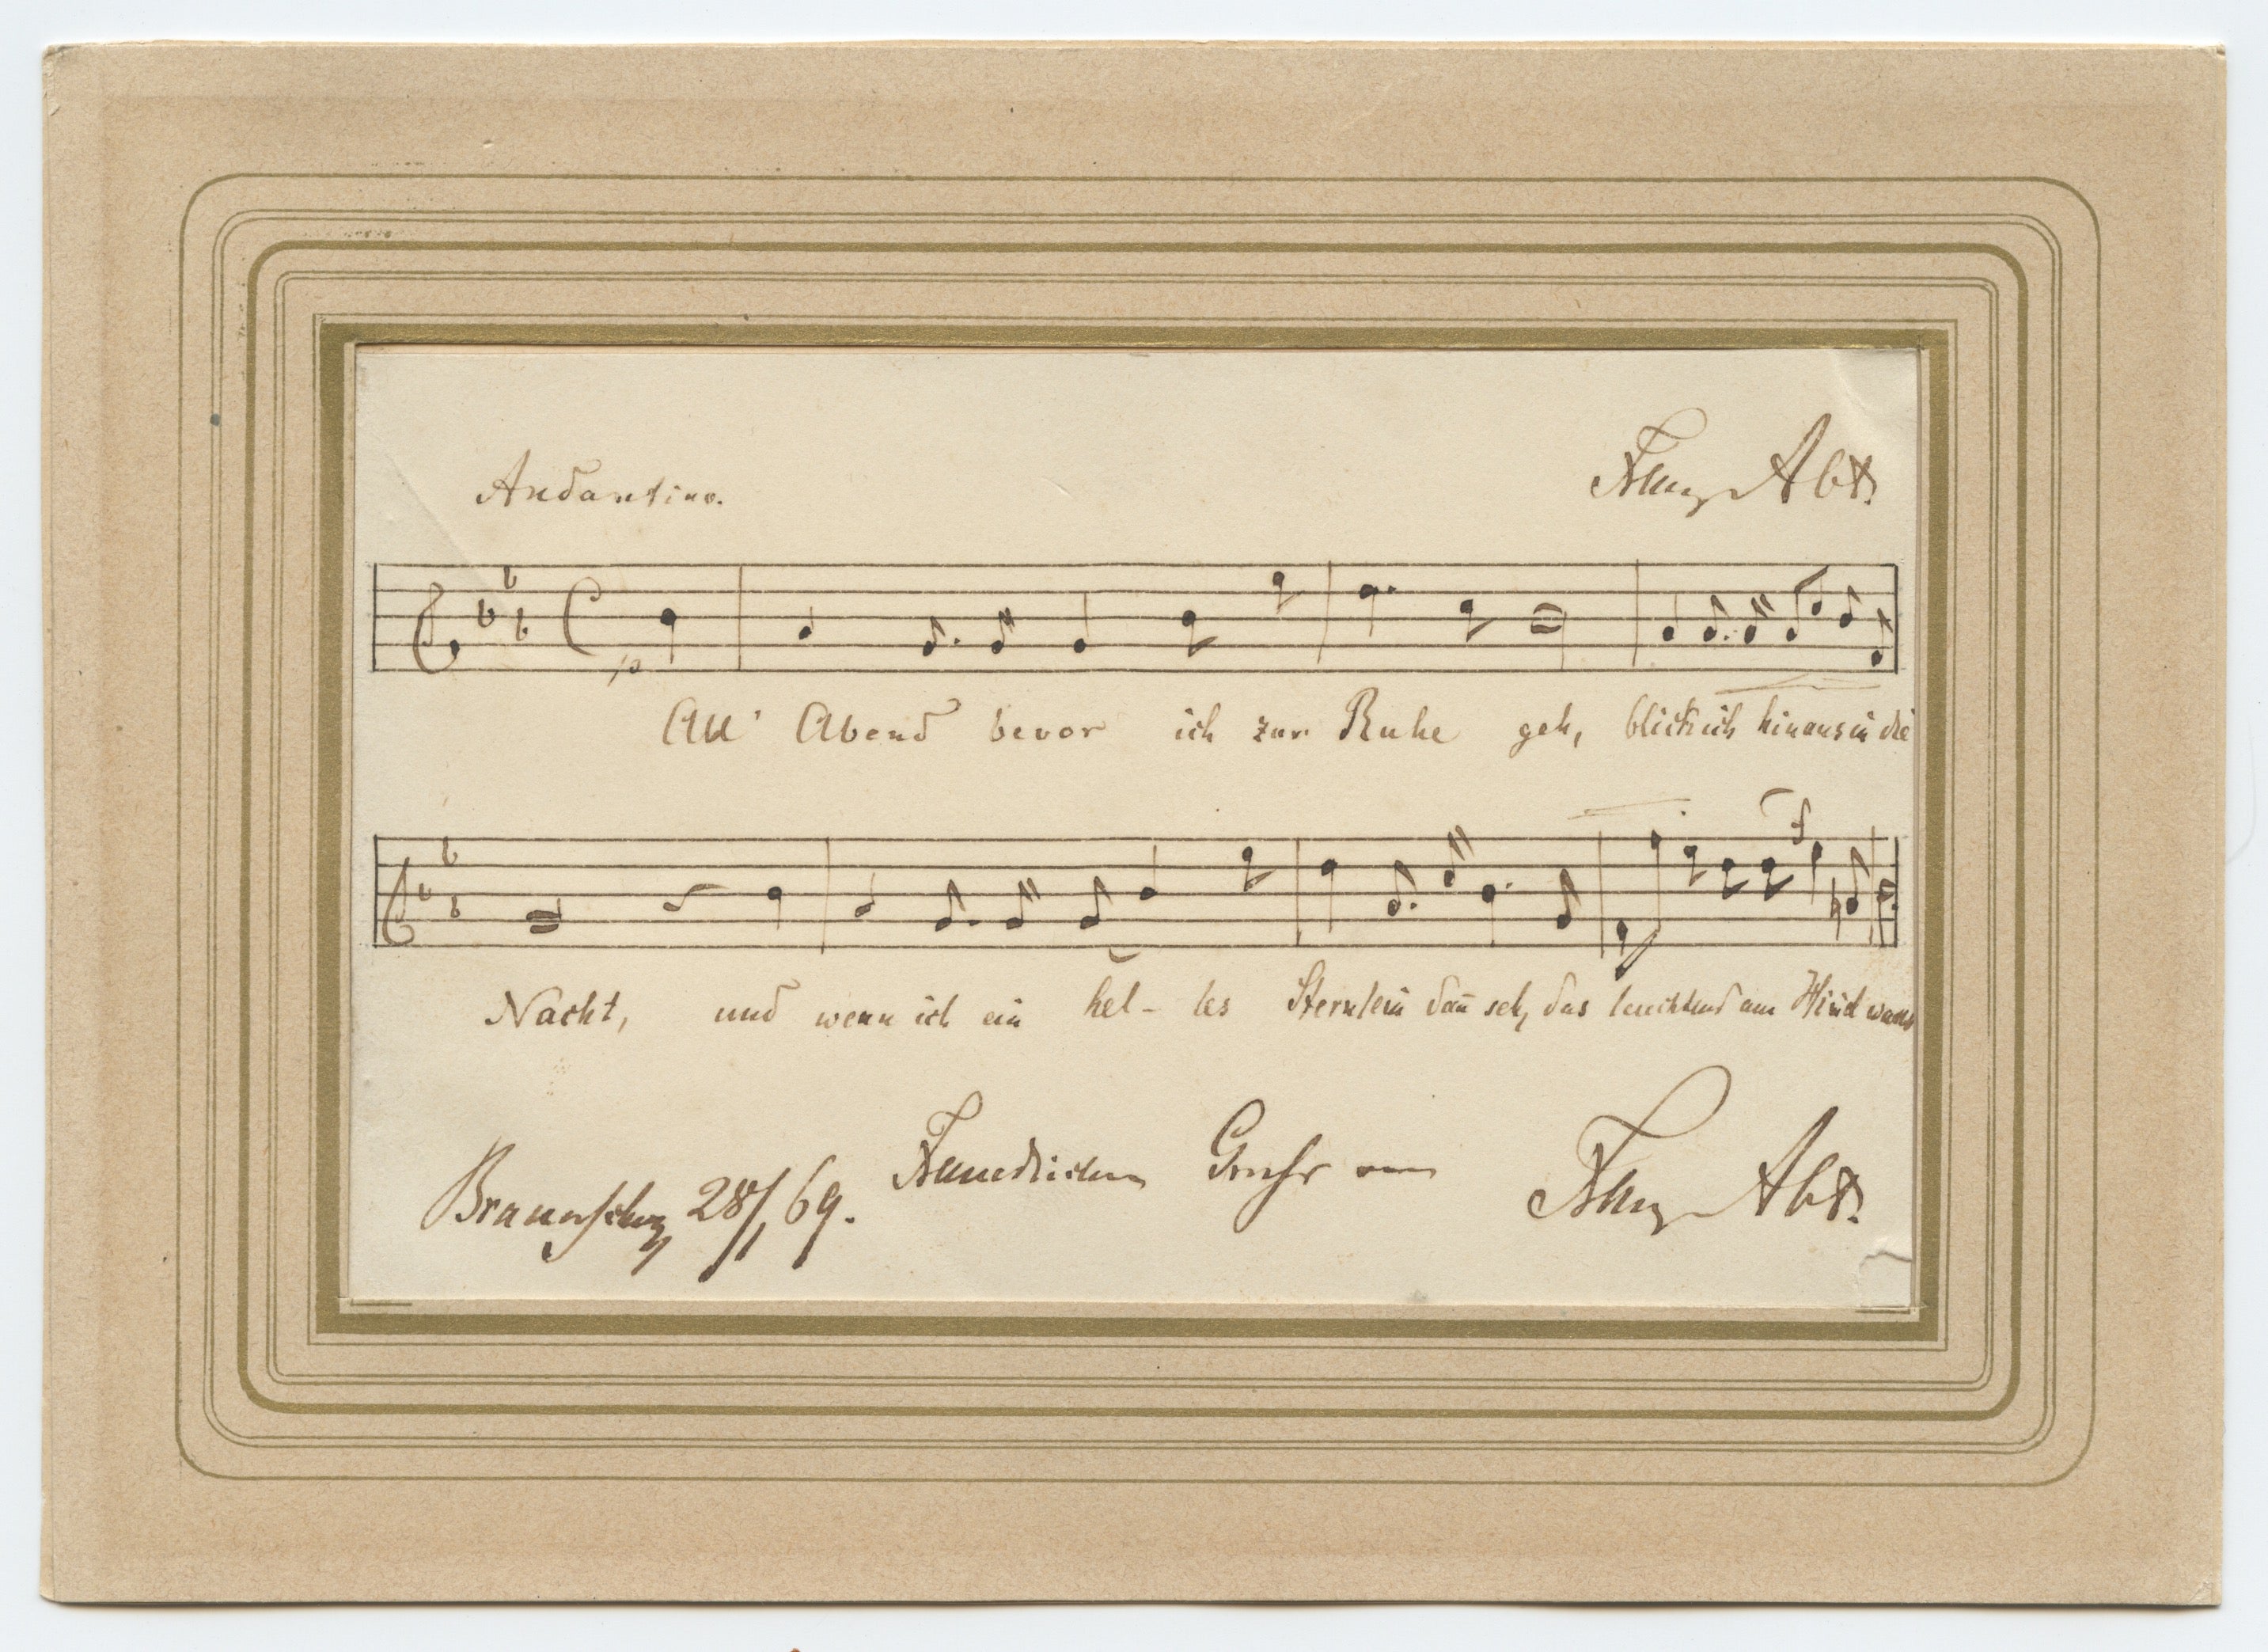 Andantino.
Franz Abt.
p
All' Abend bevor ich zur Ruhe geh, blick ich hinaus in die
f
Nacht, und wenn ich ein hel- les Sternlein dañ seh, das leuchtend am
Braunschwg 28/1 69. Freundlichen Gruß von Franz Abt.